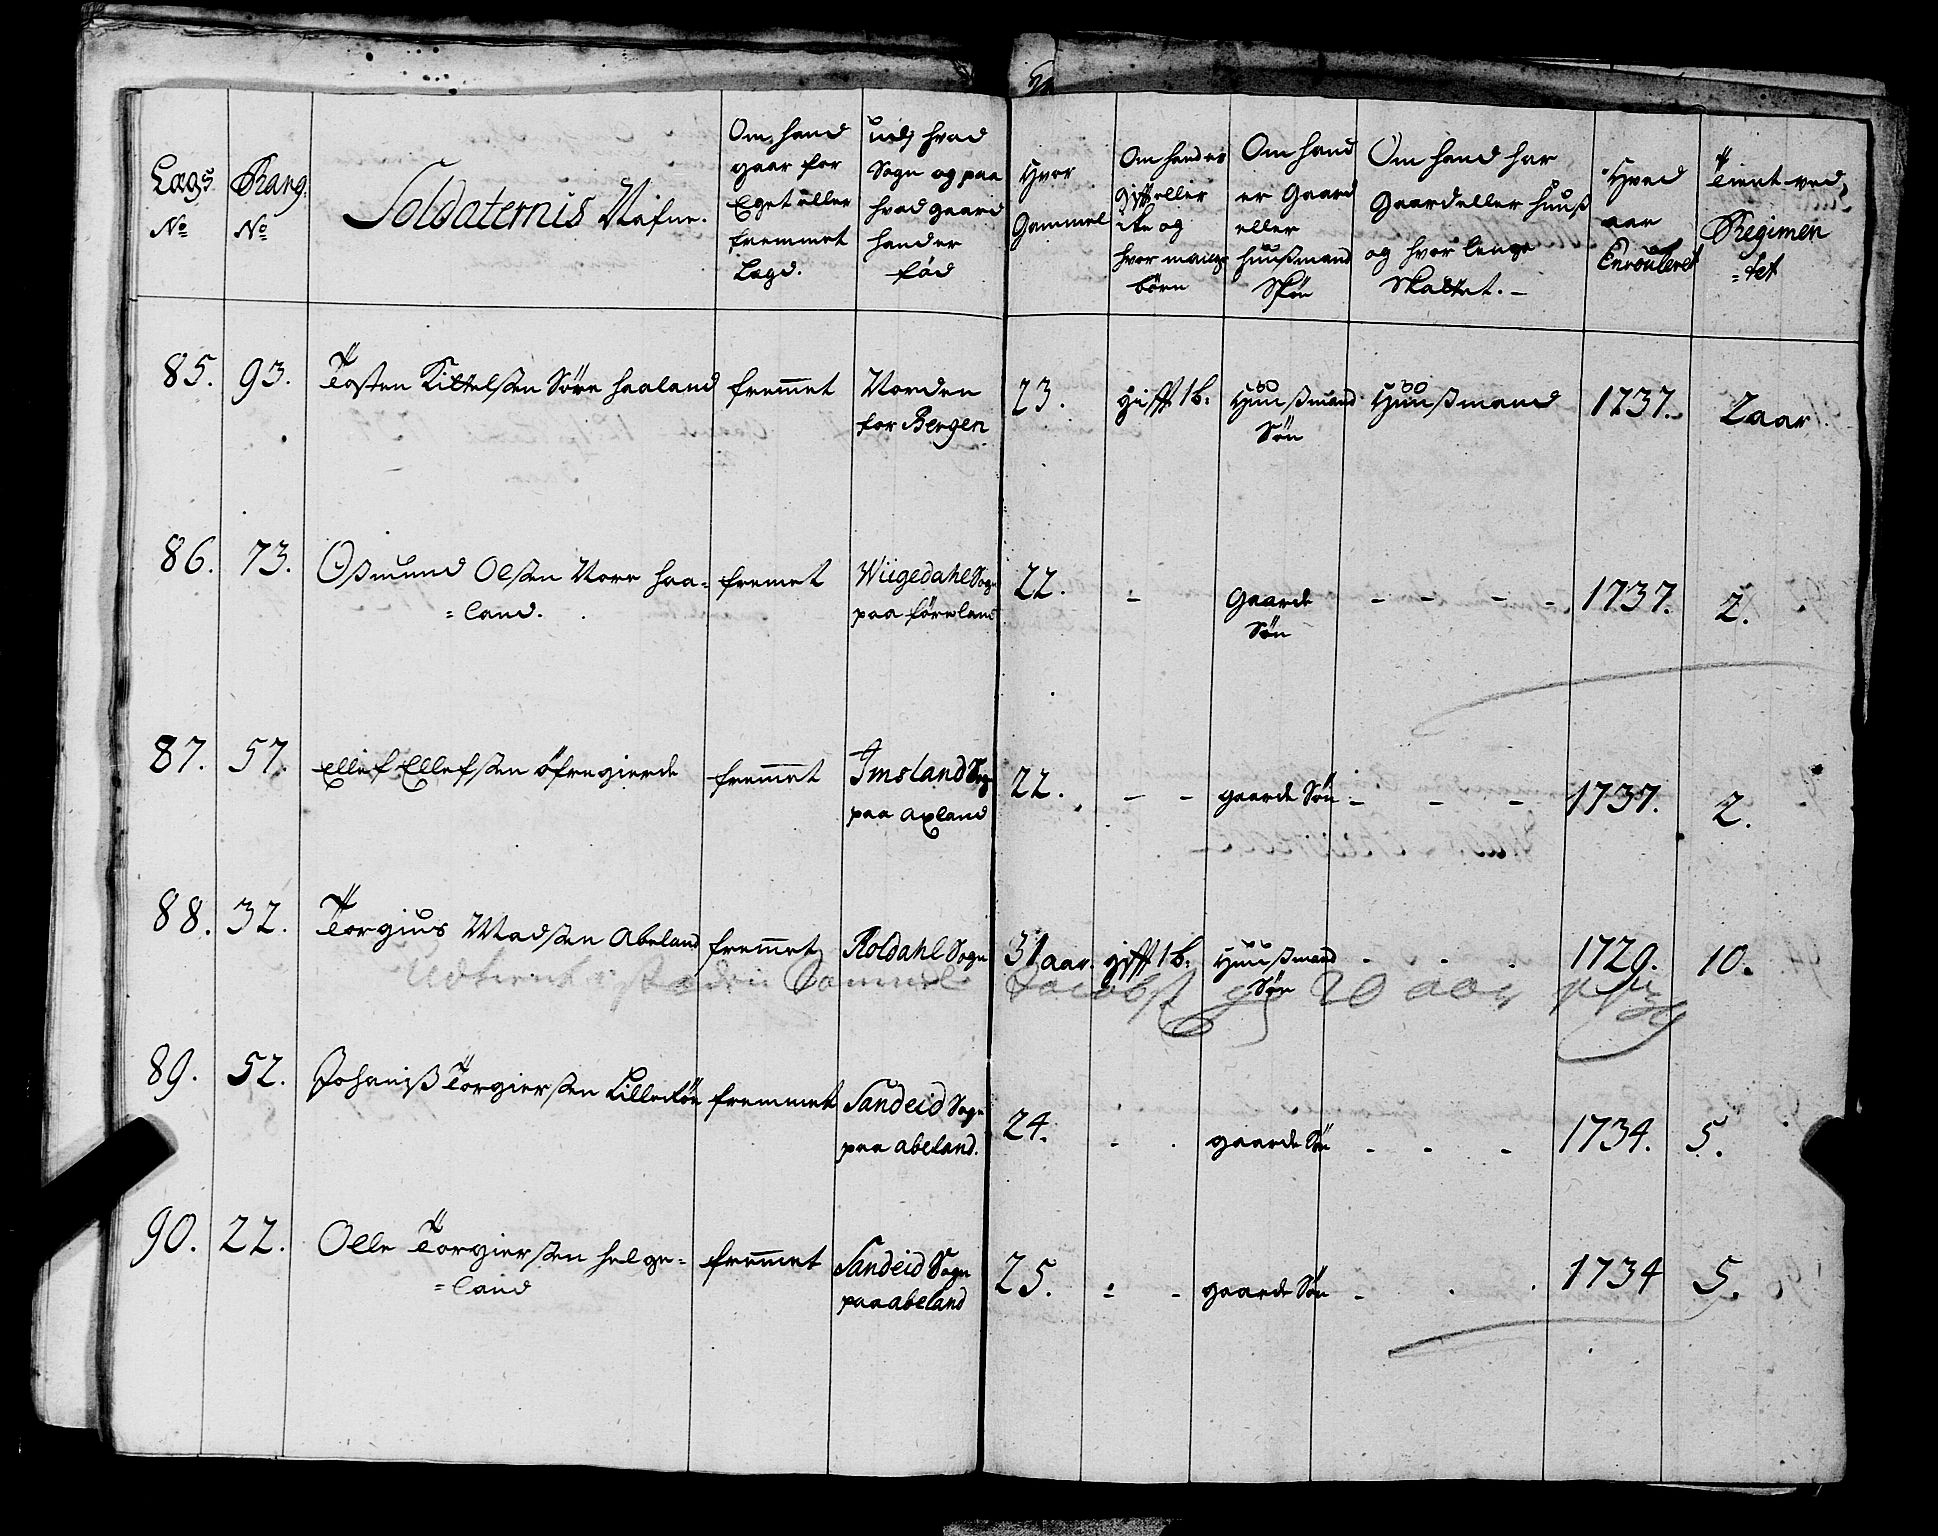 Lags No
Rang No
Soldaternis Nafne.
Om hand gaar for Eget eller fremmet Lægd.
udj hvad Sogn og paa hvad gaard hand er fød
Hvor Gammel
Om hand er gift eller ike og hvor mange børn
Om hand er Gaard eller huusmand Søn
Om hand har Gaard eller huuß og hvor lenge Skattet.
Hvad aar Enroulleret
Tient ved Regimen=tet
85. 93. Tosten Kittelsen Søre Haaland fremmet Norden for Bergen 23. gifft 1 b: Huußmand Søn Huußmand 1737. 2 aar
86. 73. Oßmund Olsen Nore Haa=land. fremet Wiigedahl Sogn paa førreland 22. - Gaarde Søn - - - - 1737. 2.
87. 57. Ellef Ellefsen øfregierde fremmet Imsland Sogn paa Axland 22. - - gaarde Søn - - - 1737. 2.
88. 32. Torgius Madsen Abeland fremmet Roldahl Sogn 31 aar. gifft 1 b: Huußmand Søn - - - 1729. 10.
Udtient i Staden Samuel Jacobs 20 aar
89. 52. Johaniß Torgiersen Lilleløe fremmet Sandeid Sogn paa abeland. 24. - - gaarde Søn - - - 1734. 5.
90. 22. Olle Torgiersen Helge=land fremmet Sandeid Sogn paa abeland 25. - - gaarde Søn - - - 1734 5.